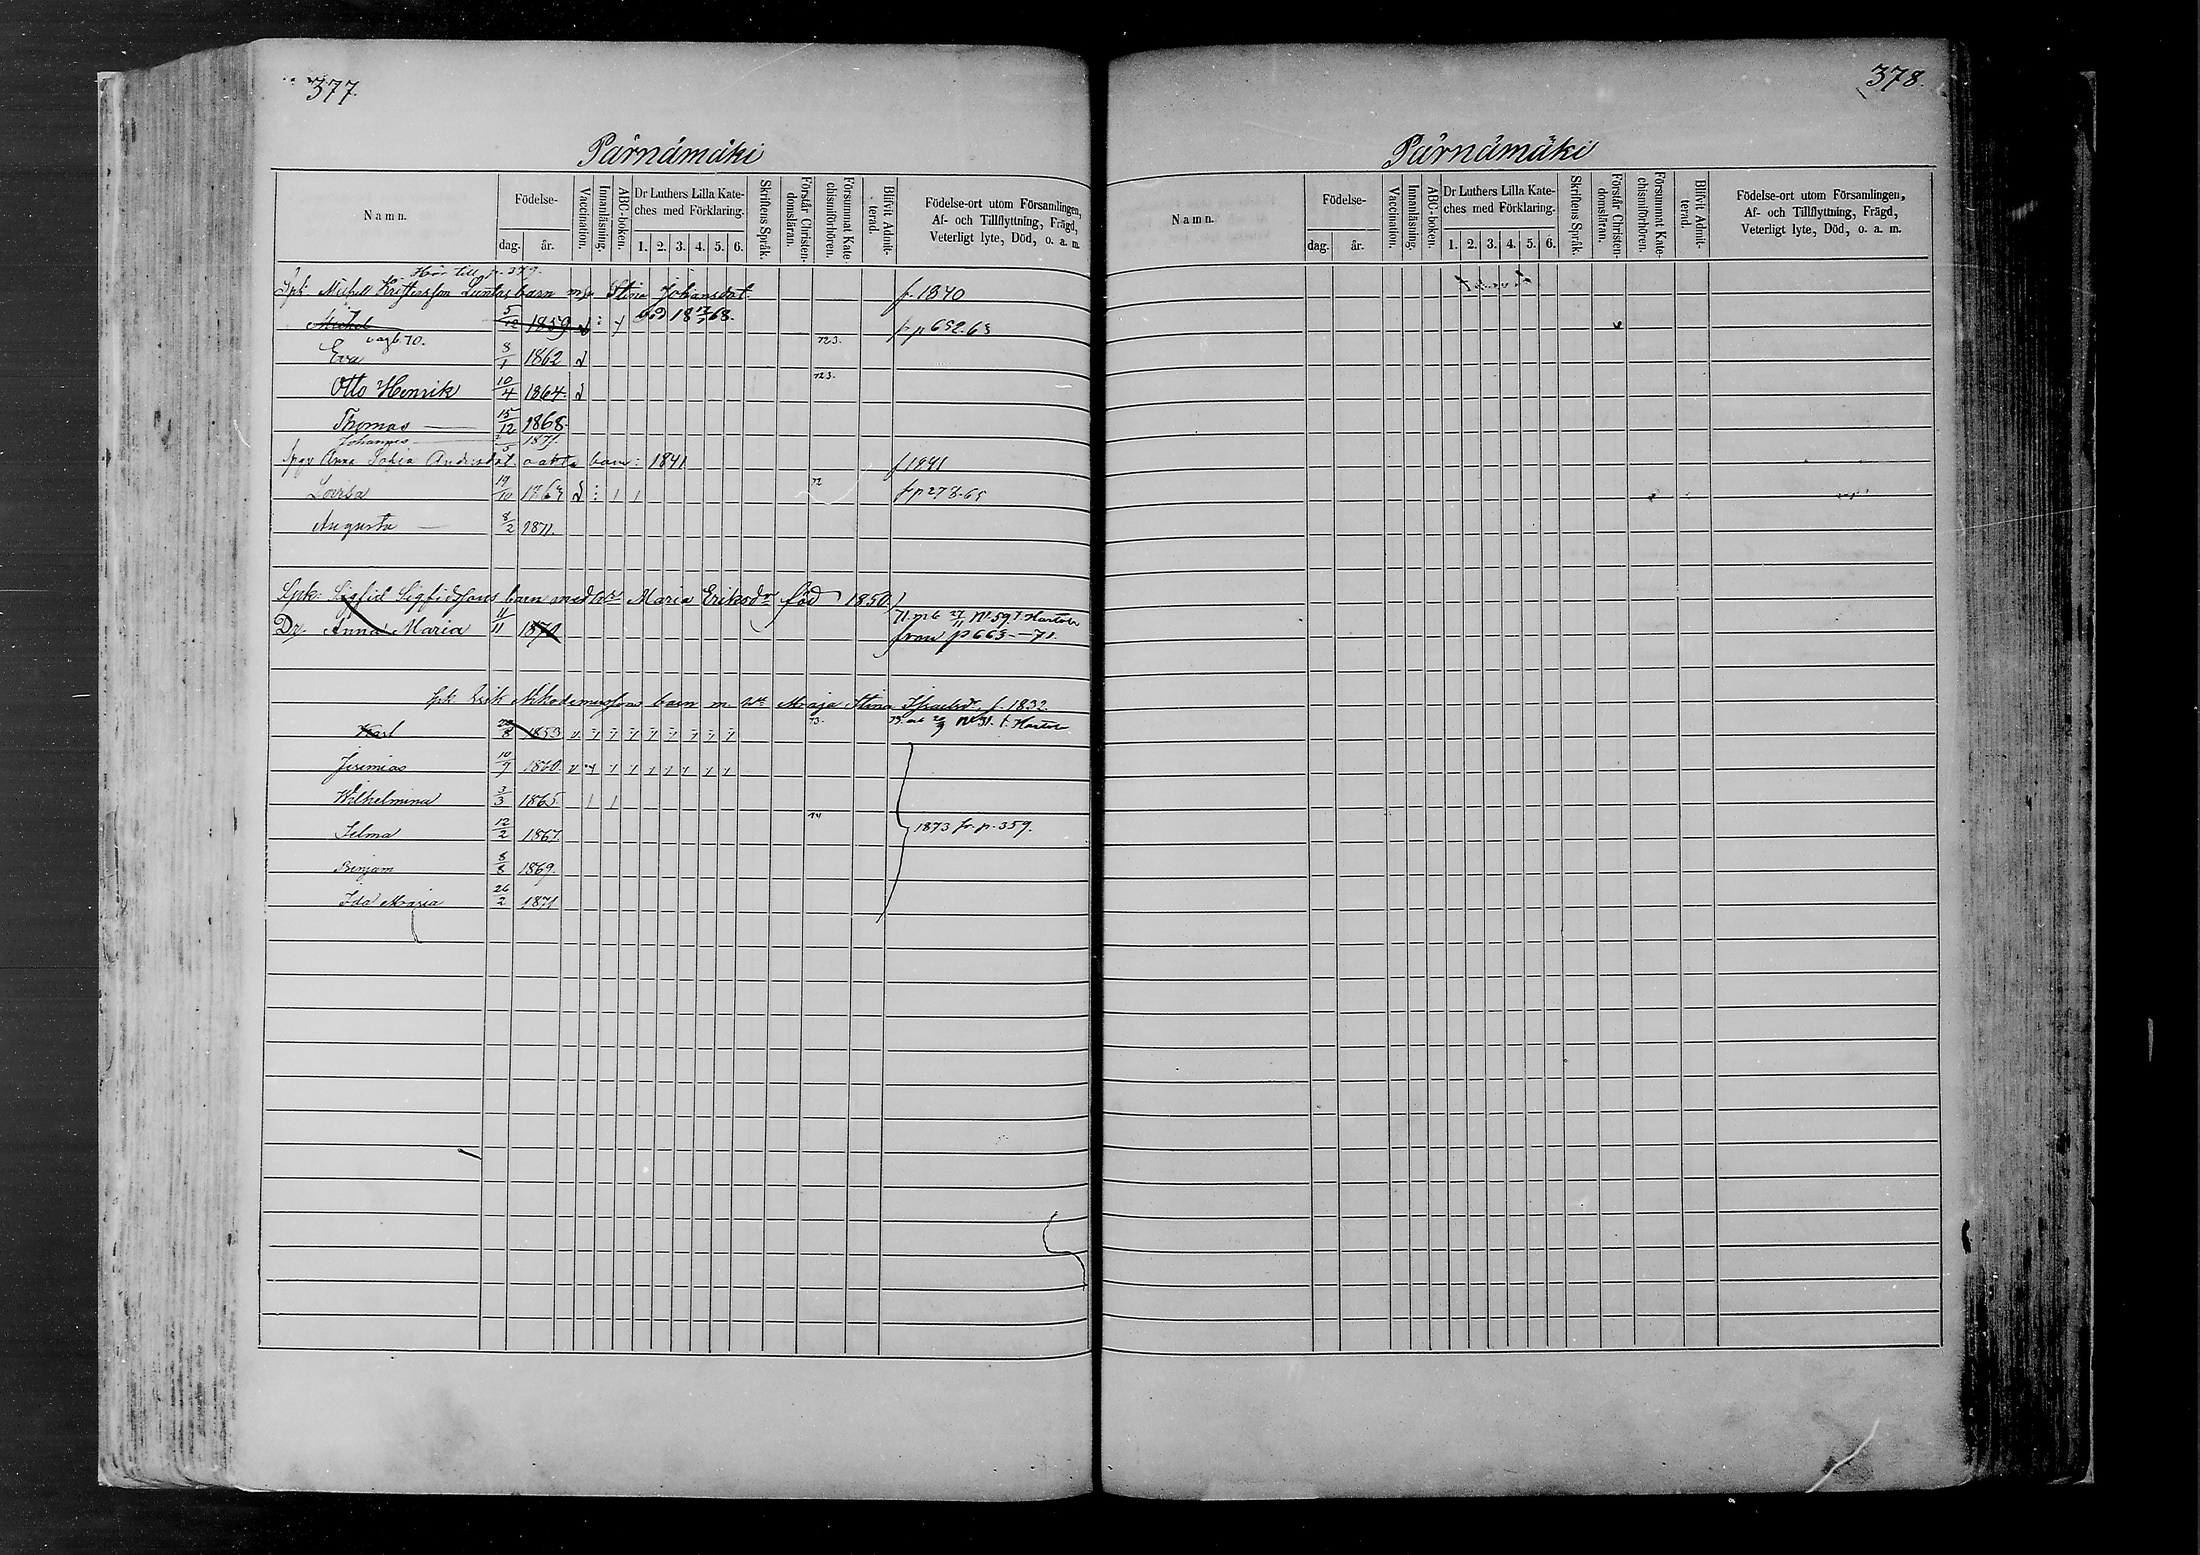 377.
Pärnämäki
Namn.
Födelse-
dag. år.
Vaccination.
Innanläsning.
ABC-boken.
Dr Luthers Lilla Kate-
ches med Förklaring.
1. 2. 3. 4. 5. 6.
Skriftens Språk.
Förstår Christen-
domsläran.
Försummat Kate-
chismiförhören.
Blifvit Admit-
terad.
Födelse-ort utom Församlingen,
Af- och Tillflyttning, Frägd,
Veterligt lyte, Död, o. a. m.
Hör till p. 379.
barn Stina Johansdot. f. 1840
Michel 5/12 1859 död 18 68. fr p 652. 63
Eva 8/1 1862 723.
Otto Henrik 10/4 1864. 723.
Thomas 15/12 1868.
Johannes 2/5 1871.
Anna Sofia Andersdot. oäkta barn: 1841 f 1841
Lovisa 19/10 72 fr p 278-65
Augusta 8/2 1871.
Spk: Sigfrid Sigfridssons barn med Maria Eriksdr född 1850
71 m b 27/11 No 59 t. Hartola
Dr. Anna Maria 11/11 1870 från p 663 - 71.
Spk. Erik Nikodemussons barn m. Maja Stina f. 1832.
Karl 1853 73. No 31. t. Hartola
Jeremias 10/9 1860.
Wilhelmina 3/3 1865.
Selma 12/2 1867. 1873 fr. p. 359.
Benjam 8/8 1869.
Ida Maria 26/2 1871
378.
Pärnämäki
Namn.
Födelse-
dag. år.
Vaccination.
Innanläsning.
ABC-boken.
Dr Luthers Lilla Kate-
ches med Förklaring.
1. 2. 3. 4. 5. 6.
Skriftens Språk.
Förstår Christen-
domsläran.
Försummat Kate-
chismiförhören.
Blifvit Admit-
terad.
Födelse-ort utom Församlingen,
Af- och Tillflyttning, Frägd,
Veterligt lyte, Död, o. a. m.